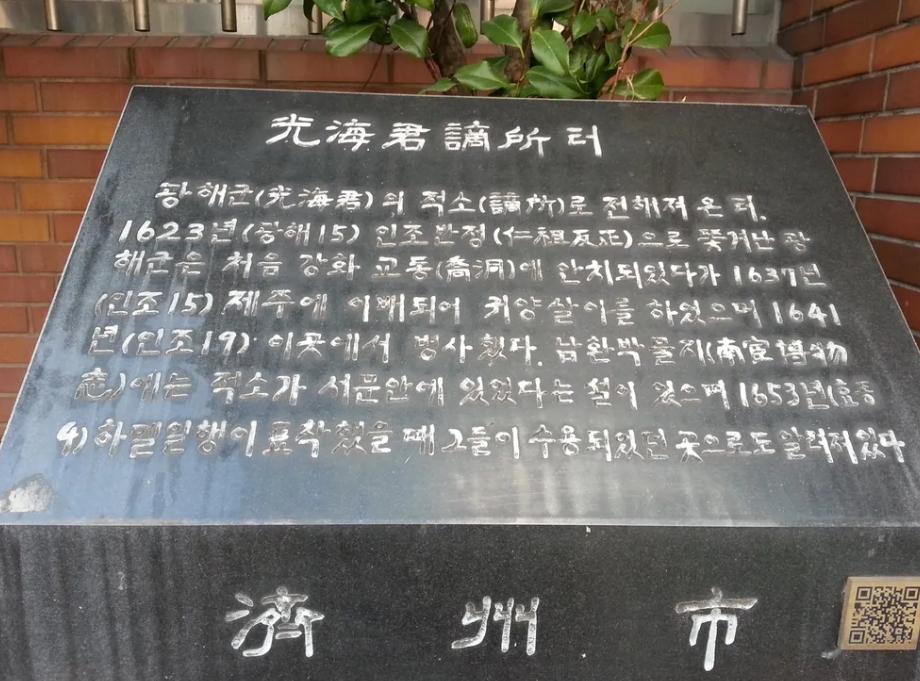 光海君謫所터
광해군(光海君)의 적소(謫所)로 전해져 온 터.
1623년(광해15) 인조반정(仁祖反正)으로 쫓겨난 광
해군은 처음 강화 교동(喬洞)에 안치되었다가 1637년
(인조15) 제주에 이배되어 귀양살이를 하였으며 1641
년(인조19) 이곳에서 병사했다. 남환박물지(南宦博物
志)에는 적소가 서문안에 있었다는 설이 있으며 1653년(효종
4) 하멜일행이 표착했을 때 그들이 수용되었던 곳으로도 알려져있다
濟州市